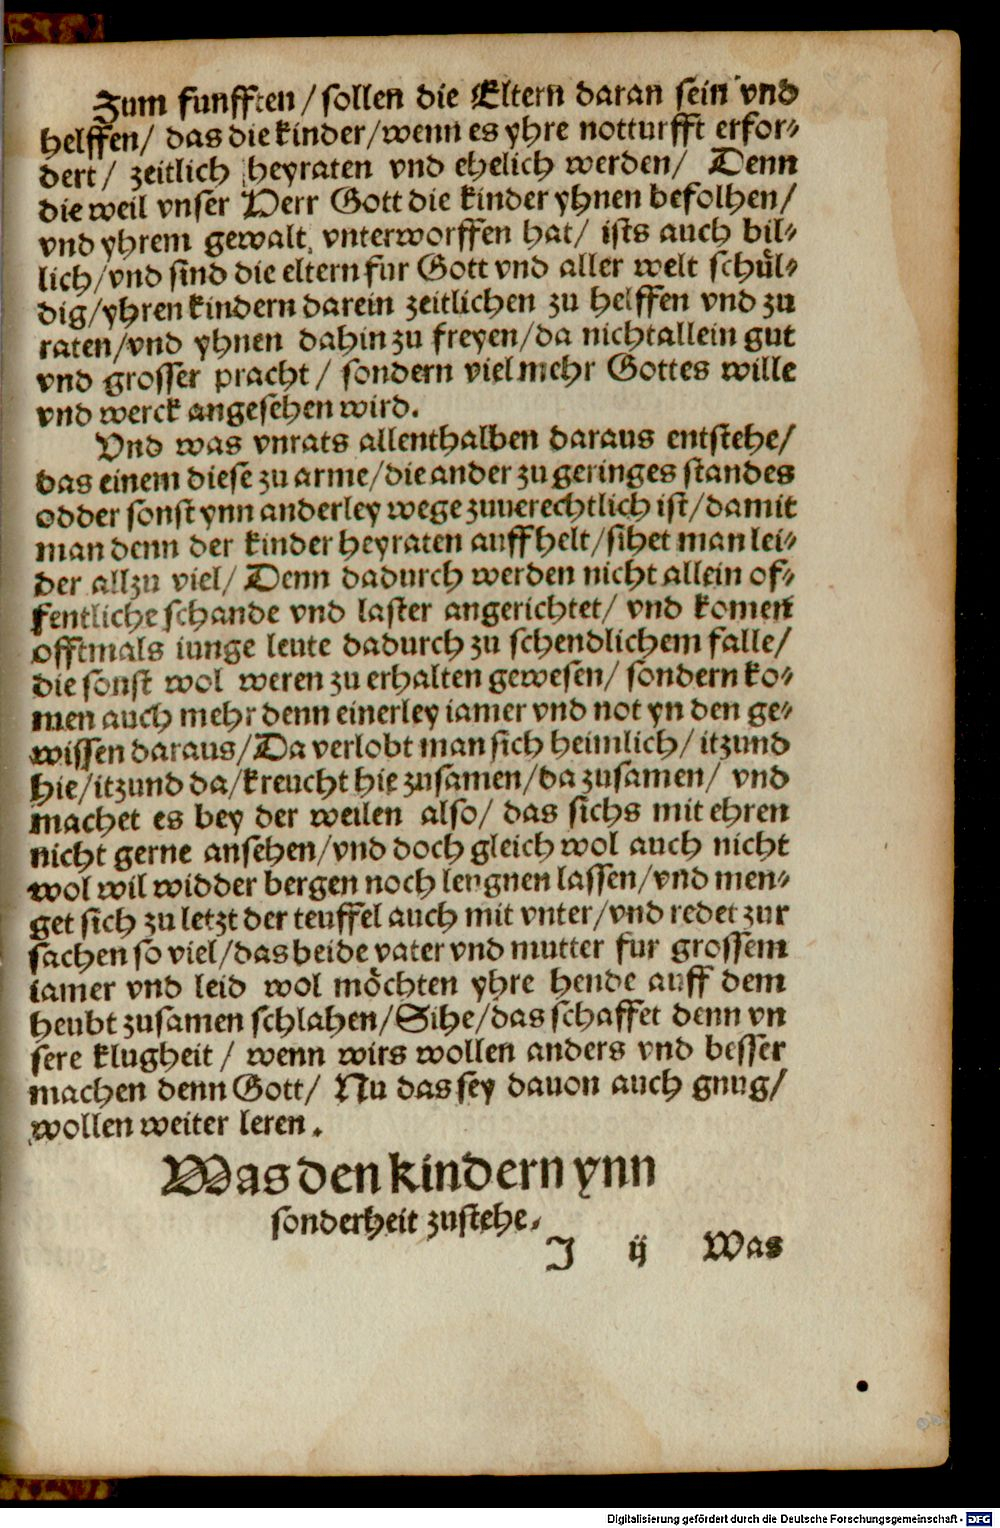 Zum funfften / sollen die Eltern daran sein vnd
helffen / das die kinder / wenn es yhre notturfft erfor⸗
dert / zeitlich heyraten vnd ehelich werden / Denn
die weil vnser Herr Gott die kinder yhnen befolhen /
vnd yhrem gewalt vnterworffen hat / ists auch bil⸗
lich / vnd sind die eltern fur Gott vnd aller welt schül⸗
dig / yhren kindern darein zeitlichen zu helffen vnd zu
raten / vnd yhnen dahin zu freyen / da nicht allein gut
vnd grosser pracht / sondern viel mehr Gottes wille
vnd werck angesehen wird.
Vnd was vnrats allenthalben daraus entstehe /
das einem diese zu arme / die ander zu geringes standes
odder sonst ynn anderley wege zuuerechtlich ist / damit
man denn der kinder heyraten auffhelt / sihet man lei⸗
der allzu viel / Denn dadurch werden nicht allein of⸗
fentliche schande vnd laster angerichtet / vnd komen
offtmals iunge leute dadurch zu schendlichem falle /
die sonst wol weren zu erhalten gewesen / sondern ko⸗
men auch mehr denn einerley iamer vnd not yn den ge⸗
wissen daraus / Da verlobt man sich heimlich / itzund
hie / itzund da / kreucht hie zusamen / da zusamen / vnd
machet es bey der weilen also / das sichs mit ehren
nicht gerne ansehen / vnd doch gleich wol auch nicht
wol wil widder bergen noch leugnen lassen / vnd men⸗
get sich zu letzt der teuffel auch mit vnter / vnd redet zur
sachen so viel / das beide vater vnd mutter fur grossem
iamer vnd leid wol möchten yhre hende auff dem
heubt zusamen schlahen / Sihe / das schaffet denn vn
sere klugheit / wenn wirs wollen anders vnd besser
machen denn Gott / Nu das sey dauon auch gnug /
wollen weiter leren.
Was den kindern ynn
sonderheit zustehe.
J ij Was
Digitalisierung gefördert durch die Deutsche Forschungsgemeinschaft - DFG